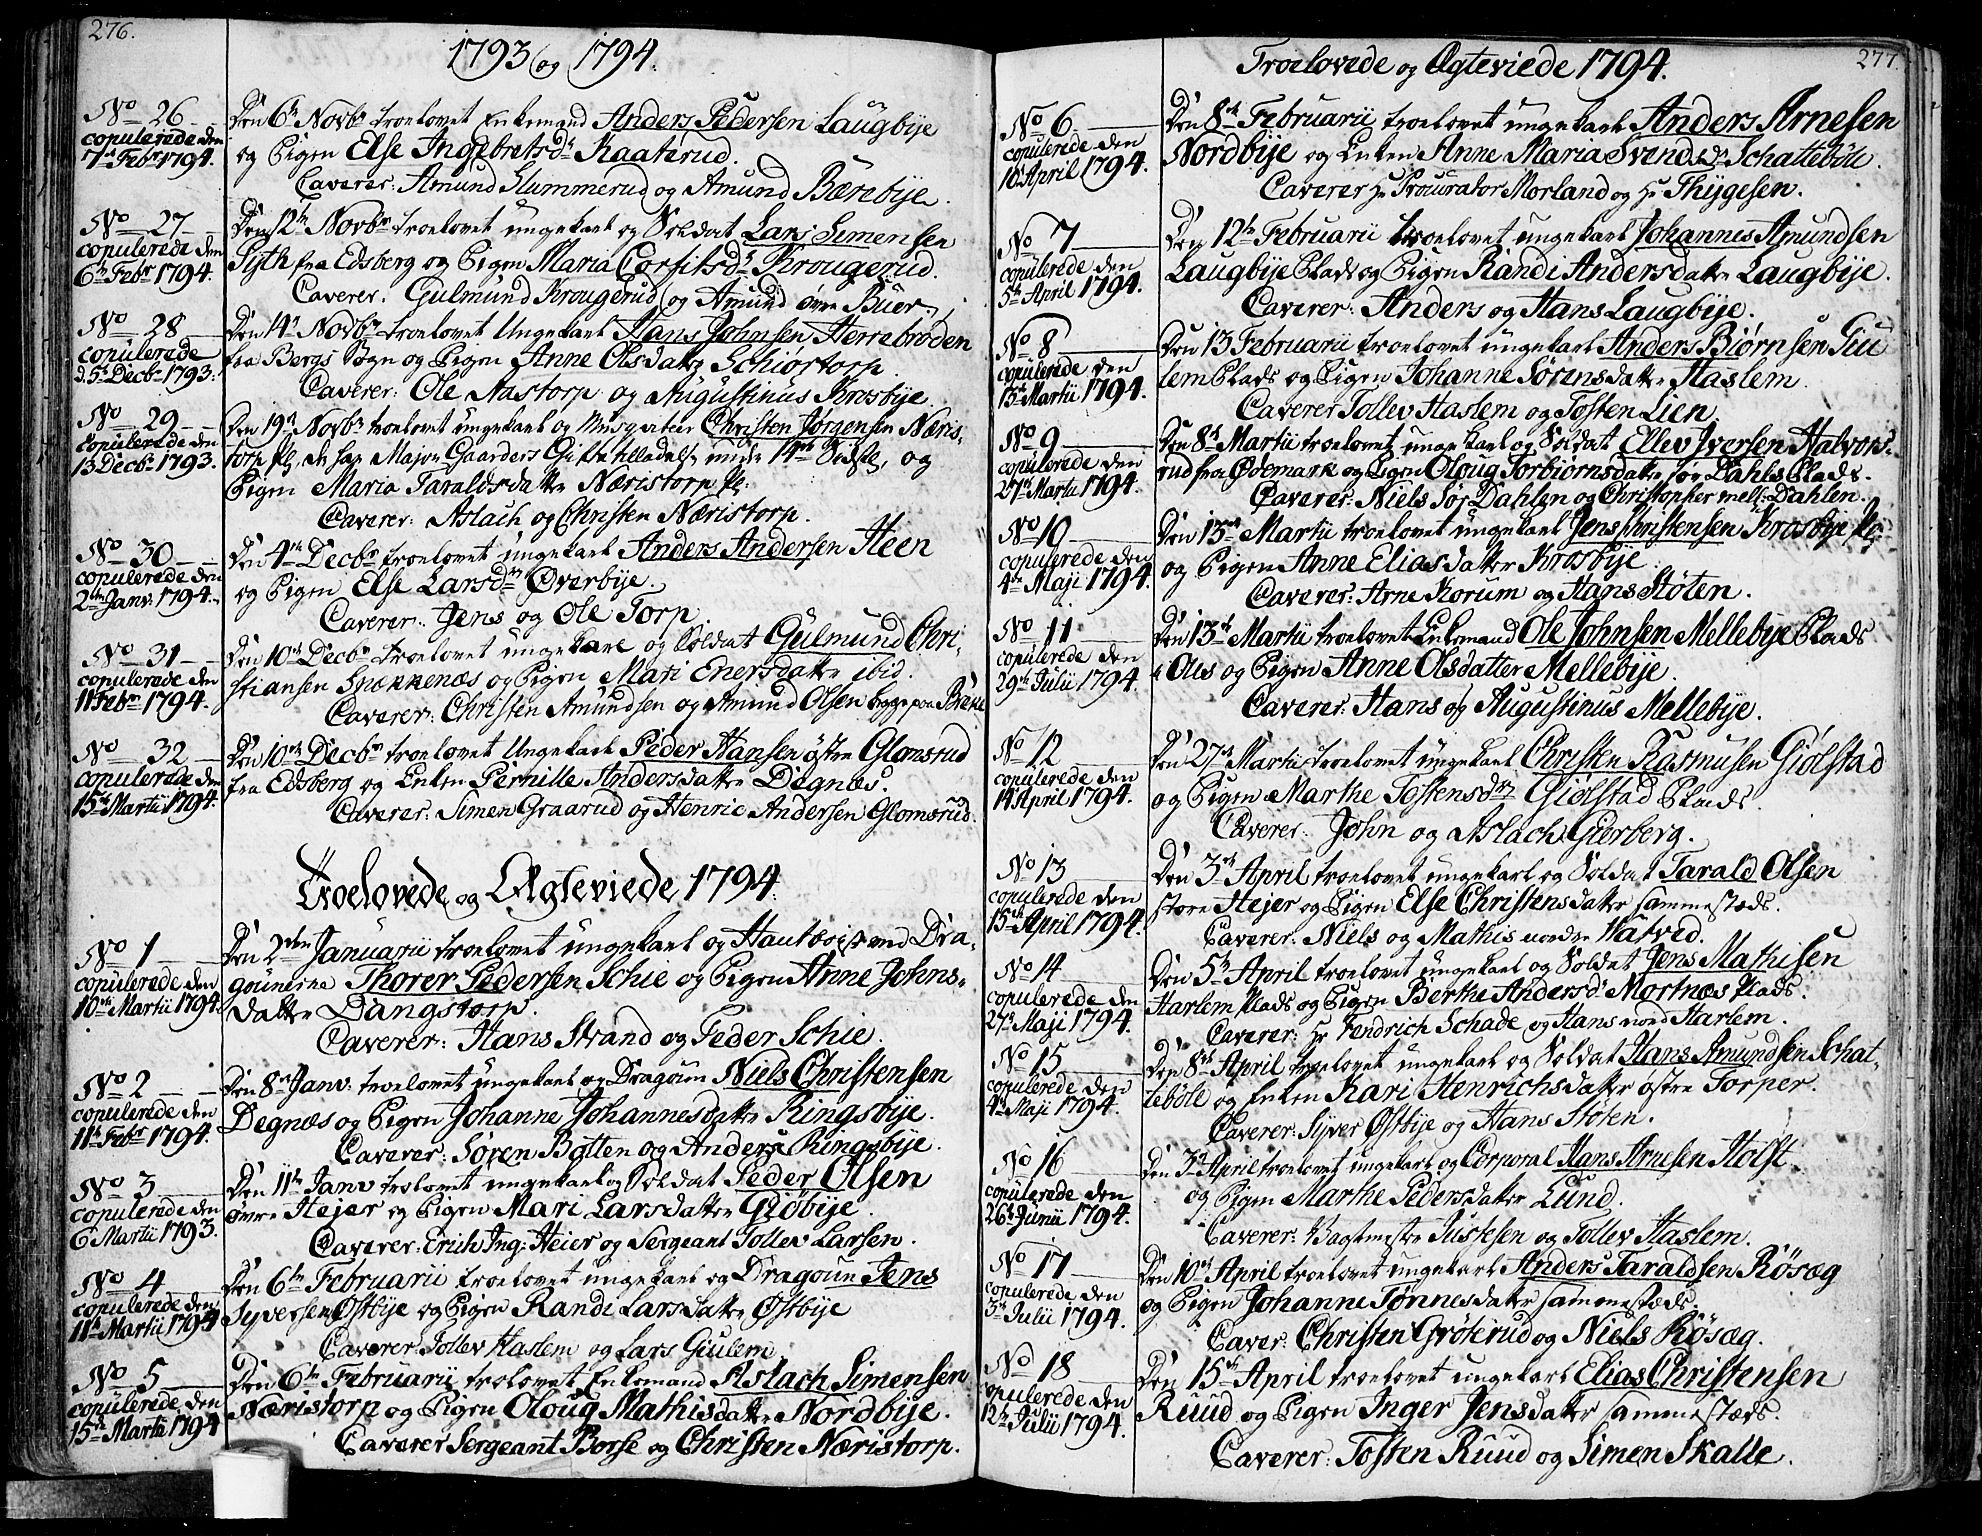 276.
1793 og 1794.
No 26
copulerede den
7de Febr 1794.
Den 6te Novbr troelovet Enkemand Anders Pedersen Laugbÿe
og Pigen Else Ingebretsdr Kaaterud.
Caverer: Amund Slummerud og Amund Bærebÿe.
No 27
copulerede den
6te Febr 1794.
Den 12te Novbr troelovet ungekarl og Soldat Lars Simensen
fra Edsberg og Pigen Maria Corfitsdr Krougerud.
Caverer: Gulmund Krougerud og Amund øvre Buer.
No 28
copulerede
d. 5te Decbr 1793.
Den 14de Novbr troelovet Ungekarl Hans Johnsen Herrebröden
fra Bergs Sogn og Pigen Anne Olsdatter Schiørtorp.
Caverer: Ole Aastorp og Augustinus Krosbÿe.
No 29
copulerede den
13 Decbr 1793.
Den 19de Novbr troelovet ungekarl og Musqueteer Christen Jørgensen Næris-
torp Pl, de har Major Gaarders Gifte tilladelse under 14de Sidstl, og
Pigen Maria Taraldsdatter Næristorp Pl:
Caverer: Aslach og Christen Næristorp.
No 30
copulerede den
2den Janv. 1794.
Den 4de Decbr troelovet ungekarl Anders Andersen Heen
og Pigen Else Larsdr Øverbÿe.
Caverer: Jens og Ole Torp.
No 31
copulerede den
11 Febr 1794.
Den 10de Decbr troelovet ungekarl og Soldat Gulmund Chri-
stiansen Spækkenæs og Pigen Mari Enersdatter ibid.
Caverer: Christen Amundsen og Amund Olsen begge paa Bræke
No 32
copulerede den
15de Martii 1794.
Den 10de Decbr troelovet Ungekarl Peder Hansen östre Glomsrud
fra Edsberg og Enken Pernille Andersdatter Degnæs.
Caverer: Simen Graarud og Henric Andersen Glomsrud.
Troelovede og Ægteviede 1794.
No 1
copulerede den
10de Martii 1794.
Den 2den Januarii troelovet ungekarl og Hautboist ved Dra-
gounerne Thorer Pedersen Schie og Pigen Anne Johns-
datter Dangstorp.
Caverer: Hans Strand og Peder Schie.
No 2
copulerede den
11te Febr 1794.
Den 8de Janv. troelovet ungekarl og Dragoun Niels Christensen
Degnæs og Pigen Johanne Johannesdatter Ringsbÿe.
Caverer: Søren Botten og Anders Ringsbÿe.
No 3
copulerede den
6 Martii 1793.
Den 11te Janv trolovet ungekarl og Soldat Peder Olsen
øvre Hejer og Pigen Mari Larsdatter Giöbÿe.
Caverer: Erich Ing: Heier og Sergeant Tollev Larsen.
No 4
copulerede den
11te Martii 1794
Den 6te Februarii troelovet ungekarl og Dragoun Jens
Syversen Østbÿe og Pigen Randi Larsdatter Østbÿe
Caverer Tollev Haslem og Lars Giulem.
No 5
copulerede den
15de Martii 1794
Den 6te Februarii trolovet Enkemand Aslach Simensen
Næristorp og Pigen Oloug Mathisdatter Nordbÿe.
Caverer Sergeant Borse og Christen Næristorp.
277.
Troelovede og Ægteviede 1794.
No 6
copulerede den
10 April 1794.
Den 8de Februarii troelovet ungekarl Anders Arnesen
Nordbÿe og Enken Anne Maria Svendsdr Schattebøle.
Caverer Hr Procurator Morland og Hr Thÿgesen.
No 7
copulerede den
5te April 1794.
Den 12te Februarii troelovet ungekarl Johannes Amundsen
Laugbÿe Plads og Pigen Randi Andersdatter Laugbÿe.
Caverer: Anders og Hans Laugbÿe.
No 8
copulerede den
15de Martii 1794.
Den 13 Februarii troelovet ungekarl Anders Biørnsen Giu
lem Plads og Pigen Johanne Sörensdatter Haslem.
Caverer Tollev Haslem og Tosten Lien.
No 9
copulerede den
27de Martii 1794.
Den 8de Martii troelovet ungekarl og Soldat Ellev Iversen Halvors-
rud fra Ødemark og Pigen Oloug Torbiörnsdatter sör Dahls Plads.
Caverer: Niels Sör Dahlen og Christopher mell: Dahlen.
No 10
copulerede den
4de Maji 1794.
Den 13de Martii troelovet ungekarl Jens Christensen Krosbÿe Pl:
og Pigen Anne Eliasdatter Krosbÿe.
Caverer: Arne Korum og Hans Støten.
No 11
copulerede den
29de Julii 1794.
Den 13de Martii troelovet Enkemand Ole Johnsen Mellebÿe Plads
Ols og Pigen Anne Olsdatter Mellebÿe.
Caverer: Hans og Augustinus Mellebÿe.
No 12
copulerede den
14 April 1794.
Den 27de Martii troelovet ungekarl Christen Rasmusen Giølstad
og Pigen Marthe Tostensdr Giølstad Plads.
Caverer: John og Aslach Gierberg.
No 13
copulerede den
15de April 1794.
Den 3de April troelovet ungekarl og Soldat Tarald Olsen
store Hejer og Pigen Else Christensdatter sammestæds.
Caverer: Niels og Mathis nordre Hatved.
No 14
copulerede den
27de Maji 1794.
Den 5te April troelovet ungekarl og Soldat Jens Mathisen
Harlem Plads og Pigen Berthe Andersdr Mortnæs Plads.
Caverer: Hr Fendrich Schade og Hans nord Harlem.
No 15
copulerede den
4de Maji 1794.
Den 8de April troelovet ungekarl og Soldat Hans Amundsen Schat-
tebøle og Enken Kari Henrichsdatter östre Torper.
Caverer: Syver Østbÿe og Hans Støten.
No 16
copulerede den
26de Junii 1794.
Den 3de April troelovet ungekarl og Corporal Hans Arnesen Holst
og Pigen Marthe Pedersdatter Lund.
Caverer: Vagtmester Justesen og Tollev Haslem.
No 17
copulerede den
3de Julii 1794.
Den 10de April troelovet ungekarl Anders Taraldsen Røsæg
og Pigen Johanne Tønnesdatter sammestæds.
Caver: Christen Grøterud og Niels Røsæg.
No 18
copulerede den
12te Julii 1794.
Den 15de April troelovet ungekarl Elias Christensen
Ruud og Pigen Inger Jensdatter sammestæds.
Caverer: Tosten Ruud og Simen Skalle.